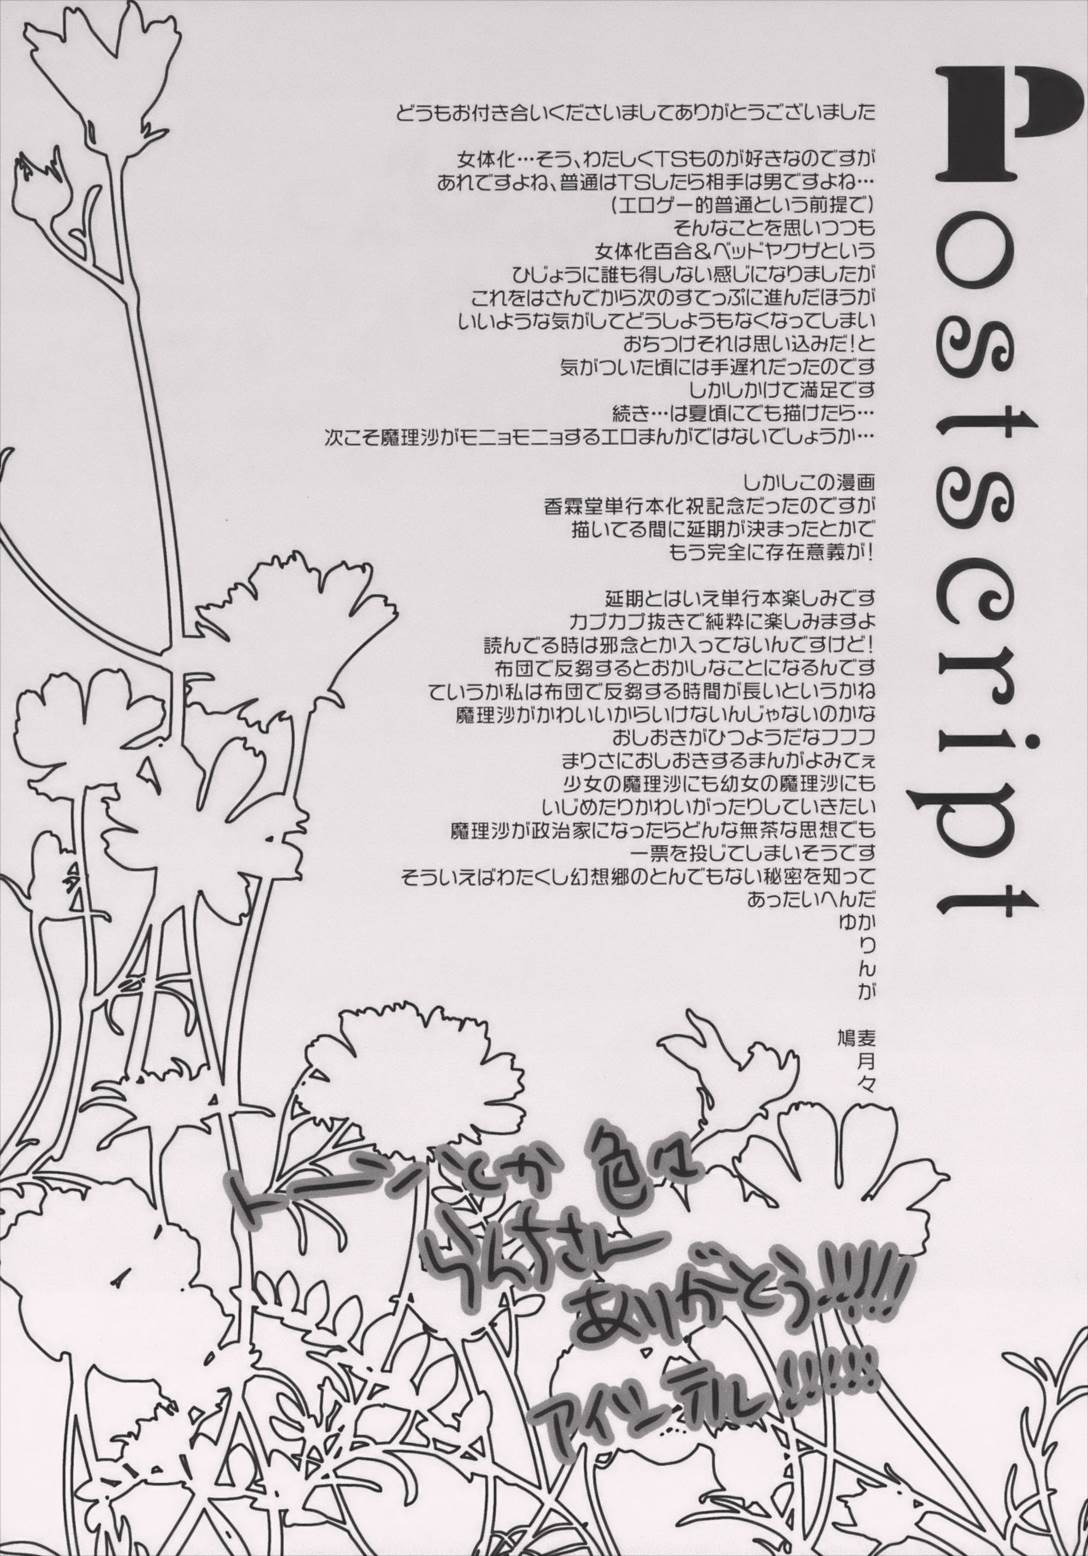 Postscript
どうもお付き合いくださいましてありがとうございました
女体化…そう、わたしくTSものが好きなのですが
あれですよね、普通はTSしたら相手は男ですよね…
(エロゲー的普通という前提で)
そんなことを思いつつも
女体化百合&ベッドヤクザという
ひじょうに誰も得しない感じになりましたが
これをはさんでから次のすてっぷに進んだほうが
いいような気がしてどうしようもなくなってしまい
おちつけそれは思い込みだ!と
気がついた頃には手遅れだったのです
しかしかけて満足です
続き…は夏頃にでも描けたら…
次こそ魔理沙がモニョモニョするエロまんがではないでしょうか…
しかしこの漫画
香霖堂単行本化祝記念だったのですが
描いてる間に延期が決まったとかで
もう完全に存在意義が!
延期とはいえ単行本楽しみです
カプカプ抜きで純粋に楽しみますよ
読んでる時は邪念とか入ってないんですけど!
布団で反芻するとおかしなことになるんです
ていうか私は布団で反芻する時間が長いというかね
魔理沙がかわいいからいけないんじゃないのかな
おしおきがひつようだなフフフ
まりさにおしおきするまんがよみてぇ
少女の魔理沙にも幼女の魔理沙にも
いじめたりかわいがったりしていきたい
魔理沙が政治家になったらどんな無茶な思想でも
一票を投じてしまいそうです
そういえばわたくし幻想郷のとんでもない秘密を知って
あったいへんだ
ゆか
り
ん
が
鳩麦
月
々
トーンとか色々
らんちさん
ありがとう!!!!!
アイツーテル!!!!!